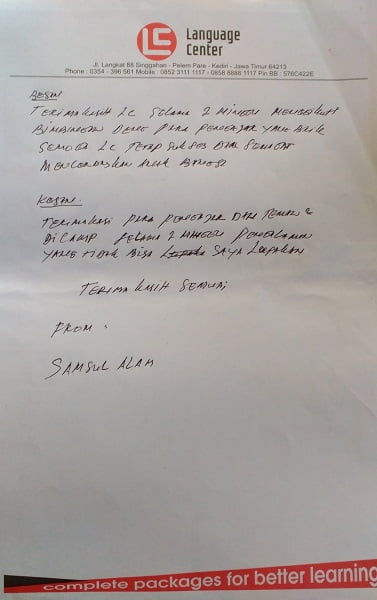 LC
Language
Center
Jl. Langkat 88 Singgahan - Pelem Pare - Kediri - Jawa Timur 64213
Phone : 0354 - 396 561 Mobile : 0852 3111 1117 - 0858 8888 1117 Pin BB : 576C422E
TERIMAKASIH LC SELAMA 2 MINGGU MENGIKUTI
BIMBINGAN DENG PARA PENGAJAR YANG BAIK
SEMOGA LC TETAP SUKSES DAN SEMANGAT
MENCERDASKAN ANAK BANGSA
KESAN.
TERIMAKASI PARA PENGAJAR DAN TEMAN 2
DI CAMP SELAMA 2 MINGGU PENGALAMAN
YANG TIDAK BISA SAYA LUPAKAN
TERIMA KASIH SEMUA,
FROM :
SAMSUL ALAM
complete packages for better learning